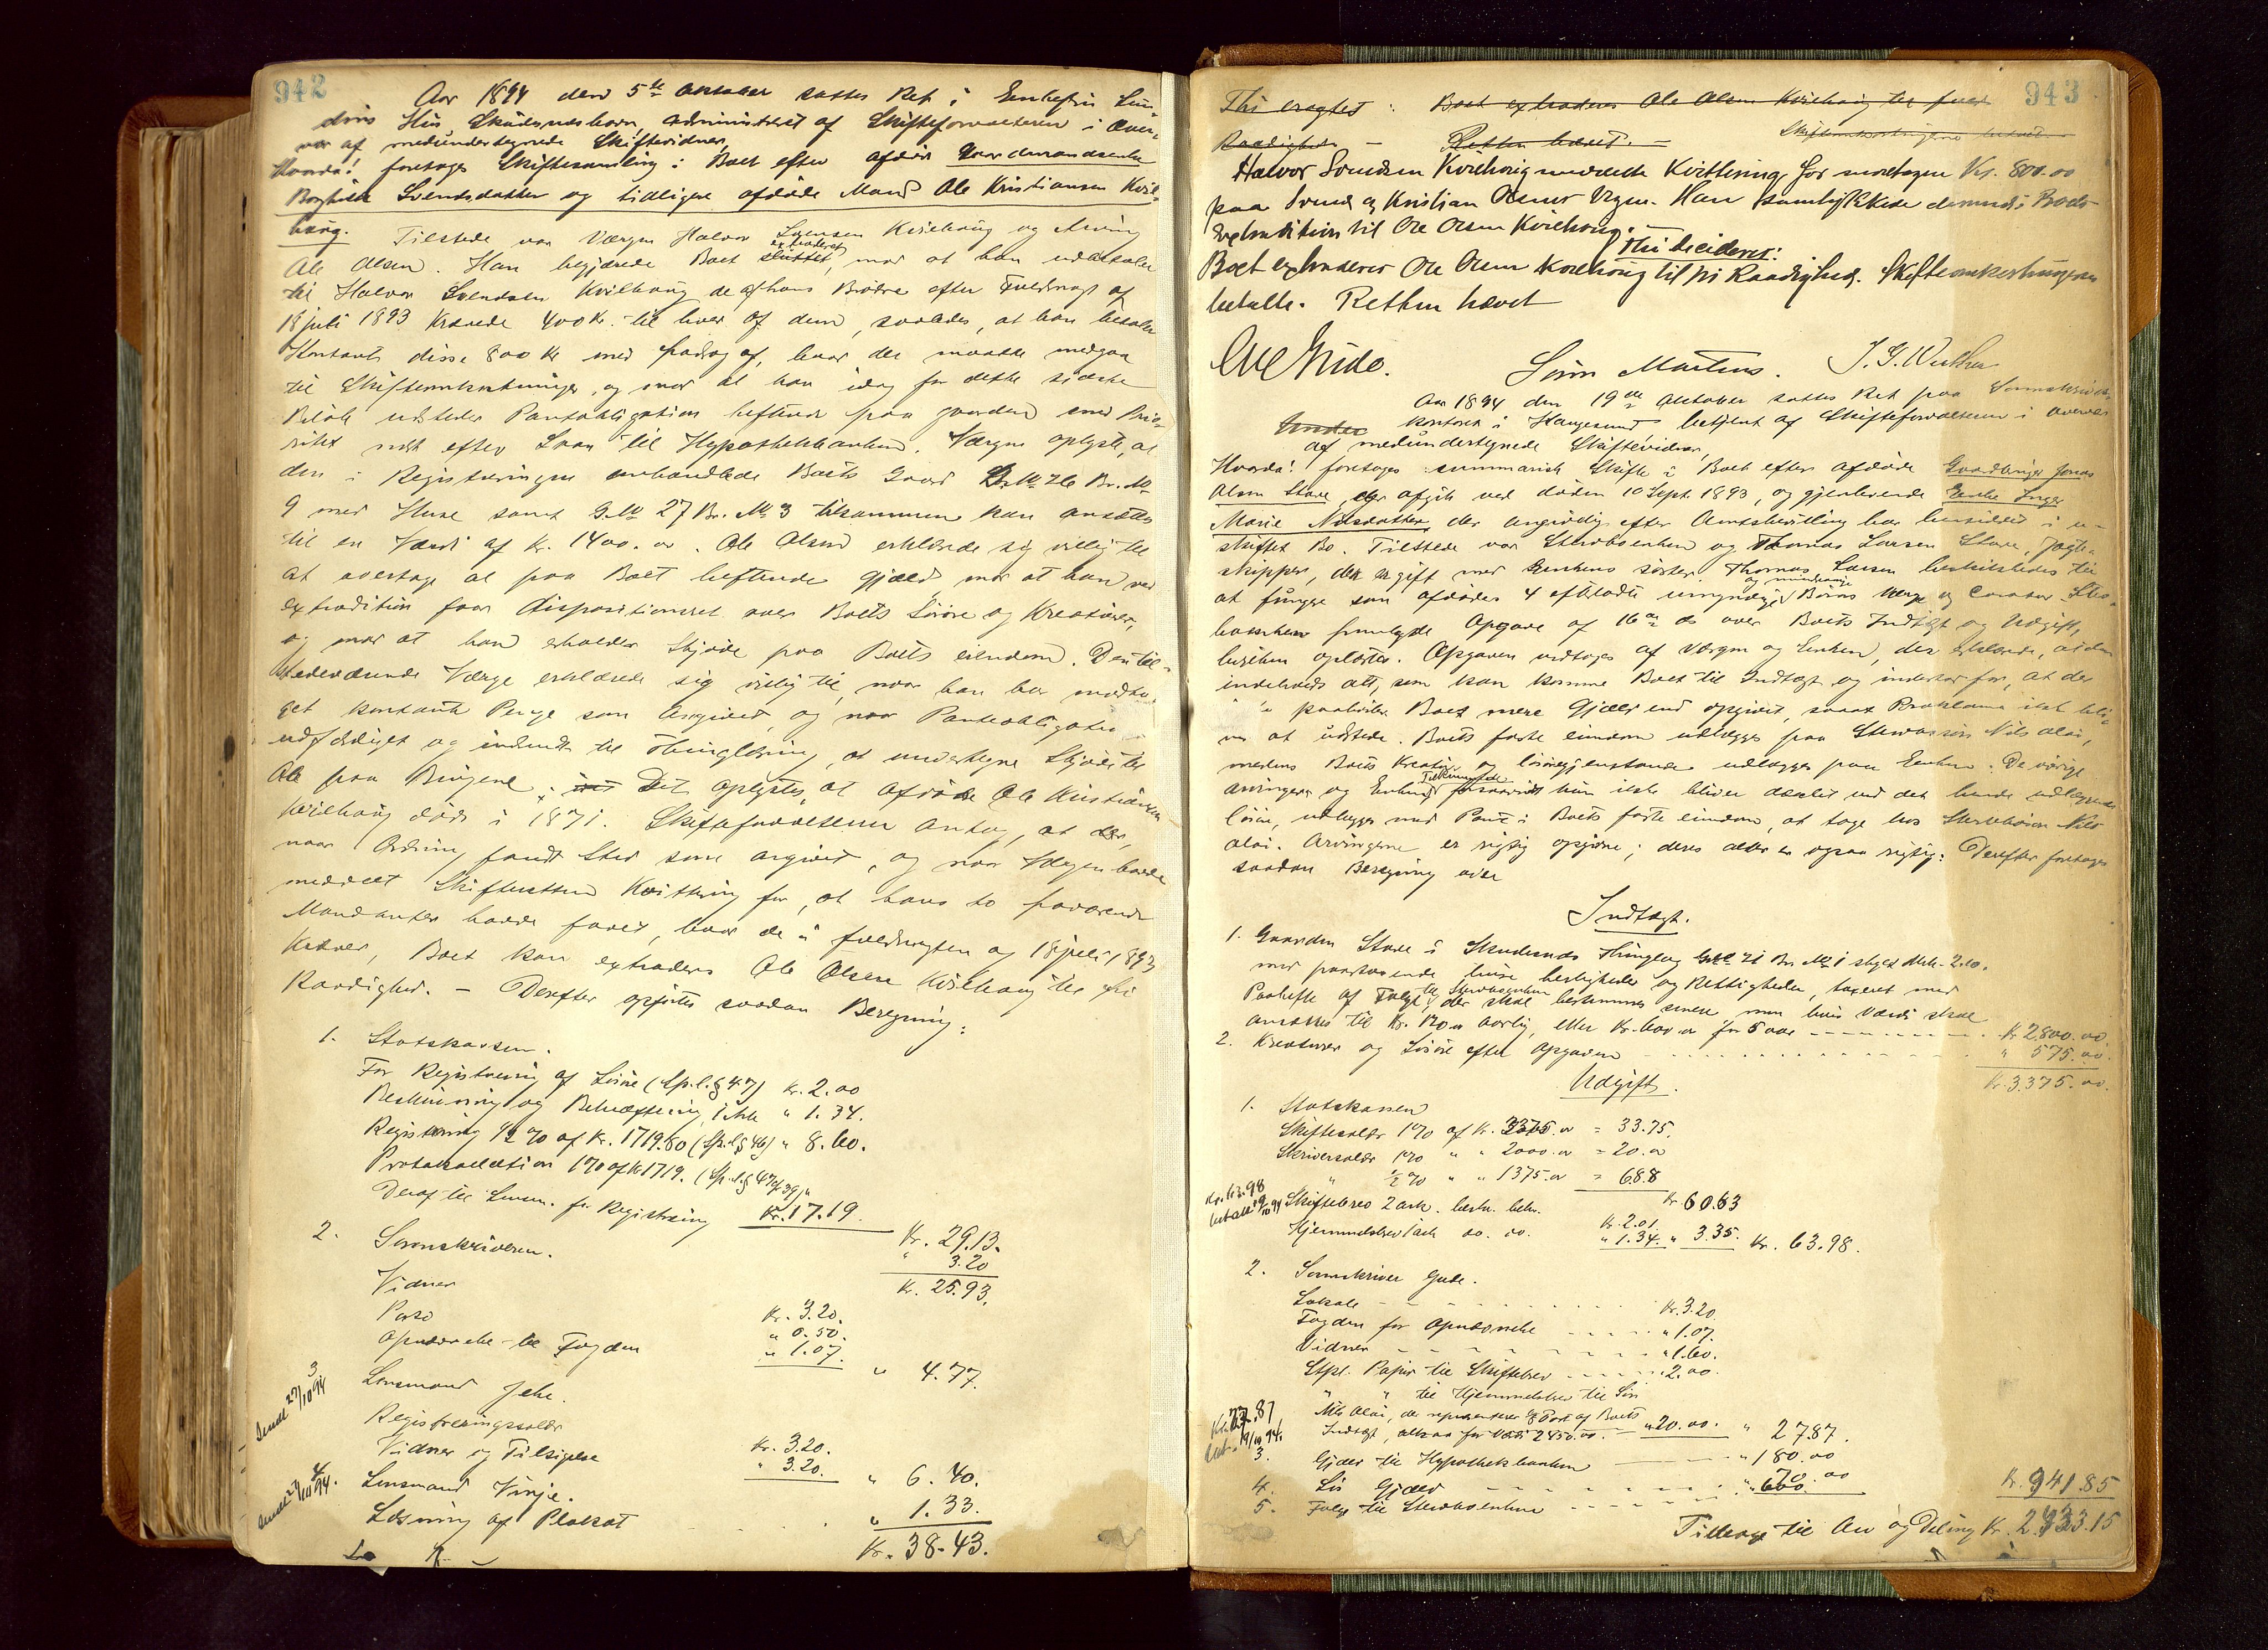 942
Aar 1894 den 5te Oktober sattes Ret i Enkefru Lun-
dins Hus Skudesneshavn, administreret af Skifteforvalteren i Over-
vær af medundertegnede Skiftevidner,
Hvorda! foretoges Skiftesamling i Boet efter afdøde Gaardmandsenke
Svendsdatter og tidligere afdøde Mand Ole Kristiansen Kvil-
haug. Tilstede var Værgen Halvor Svensen Kvilhaug og Arving
Ole Olsen. Han begjærede Boet sluttet extraderet, mod at han udbetaler
til Halvor Svendsen Kvilhaug de af hans Brødre efter Fuldmagt af
18 juli 1893 krævede 400 Kr. til hver af dem, saaledes, at han betaler
Kontant disse 800 Kr med fradrag af, hvad der maatte medgaa
til Skifteomkostninger, og mod at han idag for dette sidste
Beløb udsteder Pantobligation heftende paa gaarden med Prio-
ritet næst efter Laan til Hypothekbanken. Værgen oplyste, at
den i Registreringen omhandlede Boets Gaard G. No 26 Br. No
9 med Huse samt G. No 27 Br. No 3 tilsammen kan ansættes
til en Værdi af Kr. 1400.00. Ole Olsen erklærede sig villig til
at overtage al paa Boet heftende Gjæld mod at han ved
extradition faar Dispositionsret over Boets Løsøre og Kreaturer,
og mod at han erholder Skjøde paa Boets eiendom. Den til-
stedeværende Værge erklærede sig villig til, naar han har modta-
get kontante Penge som angivet, og naar Panteobligation
udfærdiget og indsendt til Thinglæsning, at undertegne Skjødet til
Ole paa Boigene. Det oplystes, at afdøde Ole Kristiansen
Kvilhaug døde i 1871. Skifteforvalteren antog, at der,
naar Ordning fandt Sted som angivet, og naar Værgen havde
meddelt Skifteretten Kvittering for, at hans to fraværende
Mandanter havde faaet, hvad de i fuldmagten af 18 juli 1893
Kræver, Boet kan extraderes Ole Olsen Kvilhaug til fri
Raadighed. – Derefter opgjøres saadan Beregning:
1. Statskassen.
For Registrering af Løsøre (Sp. l. § 47) Kr. 2.00
Beskrivning og Bekræftelse, 1 Ark " 1.34.
Registrering ½ % af Kr. 1719.60 (Sp. l. § 46) " 8.60.
Protokollation 1% af Kr 1719. (Sp. l. § 47 cf 39) "
Kr. 17.19
Deraf til Lensm. for Registrering
Kr. 29.13.
" 3.20
Kr. 25.93.
2. Sorenskriveren.
Vidner Kr. 3.20.
Porto " 0.50.
Opnævnelse til Fogden " 1.07.
" 4.77.
Sendt 27/10 94
3
Lensmand Jele.
Registreringssalær Kr. 3.20.
Vidner og Tilsigelse " 3.20.
" 6.40.
Sendt 27/10 94.
4
Lensmand Vinje.
Læsning af Plakat " 1.33.
Kr. 38.43.
943
Thi eragtet: Boet extraderes Ole Olsen Kvilhaug til fuld
Raadighed – Retten hævet. – Skifteomkostningerne betalt.
Halvor Svendsen Kvilhaug meddelte Kvittering for modtagne Kr. 800.00
paa Svend og Kristian Olsens Vegne. Han samtykkede dermed i Boets
Extradition til Ole Olsen Kvilhaug. –
Thi decideret:
Boet extraderes Ole Olsen Kvilhaug til fri Raadighed. Skifteomkostningerne
betalte. Retten hævet
Gude. Sørn Martens. J. G. Wulther
Aar 1894 den 19de Oktober sattes Ret paa Sorenskriver-
Under kontoret i Haugesund betjent af Skifteforvalteren i overvær
af medundertegnede Skiftevidner,
Hvorda! foretoges summarisk Skifte i Boet efter afdøde Gaardbruger Jonas
Olsen Stave, der afgik ved døden 10 Sept. 1893, og gjenlevende Enke Inger
Marie Nilsdatter, der angivelig efter Amtsbevilling har hensiddet i u-
skiftet Bo. Tilstede var Stervboenken og Thomas Larsen Stave, Jagt-
skipper, der er gift med Enkens søster. Thomas Larsen beskikkedes til
at fungere som afdødes 4 efterladte umyndige og mindreaarige Børns Værge og Curator. Ster-
boenken fremlagde Opgave af 16de ds over Boets Indtægt og Udgift,
hvilken oplæstes. Opgaven vedtoges af Værgen og Enken, der erklærede, at den
indeholdt alt, som kan komme Boet til Indtægt og indestaar for, at der
paahviler Boet mere Gjæld end opgivet, saaat Proklama ikke bli-
ver at udstede. Boets faste eiendom udlægges paa Stervbosøn Nils Olai,
medens Boets Kreatur og løsøregjenstande udlægges paa Enken. De øvrige
arvinger og Enkens Tilkommende forsaavidt hun ikke bliver dækket ved det hende udlagte
løsøre, udlægges med Pant i Boets faste eiendom, at tage hos Stervbosøn Nils
Olai. Arvingerne er rigtig opgivne; deres alder er ogsaa rigtig: Derefter foretoges
saadan Beregning over
Indtægt.
1. Gaarden Stave i Skudesnes Thinglag GNo 21 Br. No 1 skyld Mrk. 2.10.
med paastaaende huse herligheder og Rettigheder, taxeret med
Paahefte af Folge til Stervboenken, der skal bestemmes senere, men hvis Værdi skal
ansættes til Kr. 120.00 aarlig, eller Kr. 600.00 for 5 aar – – – – Kr 2,800.00
2. Kreaturer og Løsøre efter Opgaven . . . . . " 575.00.
Kr. 3375.00.
Udgift.
1. Statskassen
Skiftesalær 1% af Kr. 3375.00 = 33.75.
Skriversalær 1% " " 2000.00 = 20.00
" ½ % " " 1375.00 = 6.88
Kr. 60.63
Kr. 63.98
betalt 19/10 94
Skiftebrev 2 ark. beskr. bekr. Kr. 2.01.
Hjemmelsbrev 1 ark do. do. " 1.34. " 3.35. Kr. 63.98.
2. Sorenskriver Gude.
Lokale – – . . . . . . Kr. 3.20
Fogden for Opnævnelse . . . . " 1.07.
Vidner – – – – – " 1.60.
Stpl. Papir til Skiftebrev – – – " 2.00.
" " til Hjemmelsbrev til Søn
Nils Olai, der repræsenterer Part af Boets
Indtægt, altsaa for Værdi 2450.00. – " 20.00. " 27.87.
Kr. 27.87
bet. 19/10 94.
3. Gjæld til Hypothekbanken – – – " 180.00
4. Løs Gjæld – – – – – " 70.00
5. Folge til Stervboenken – – – – " 600.
Kr. 941.85
Tilbage til Arv og Deling Kr. 2,433.15